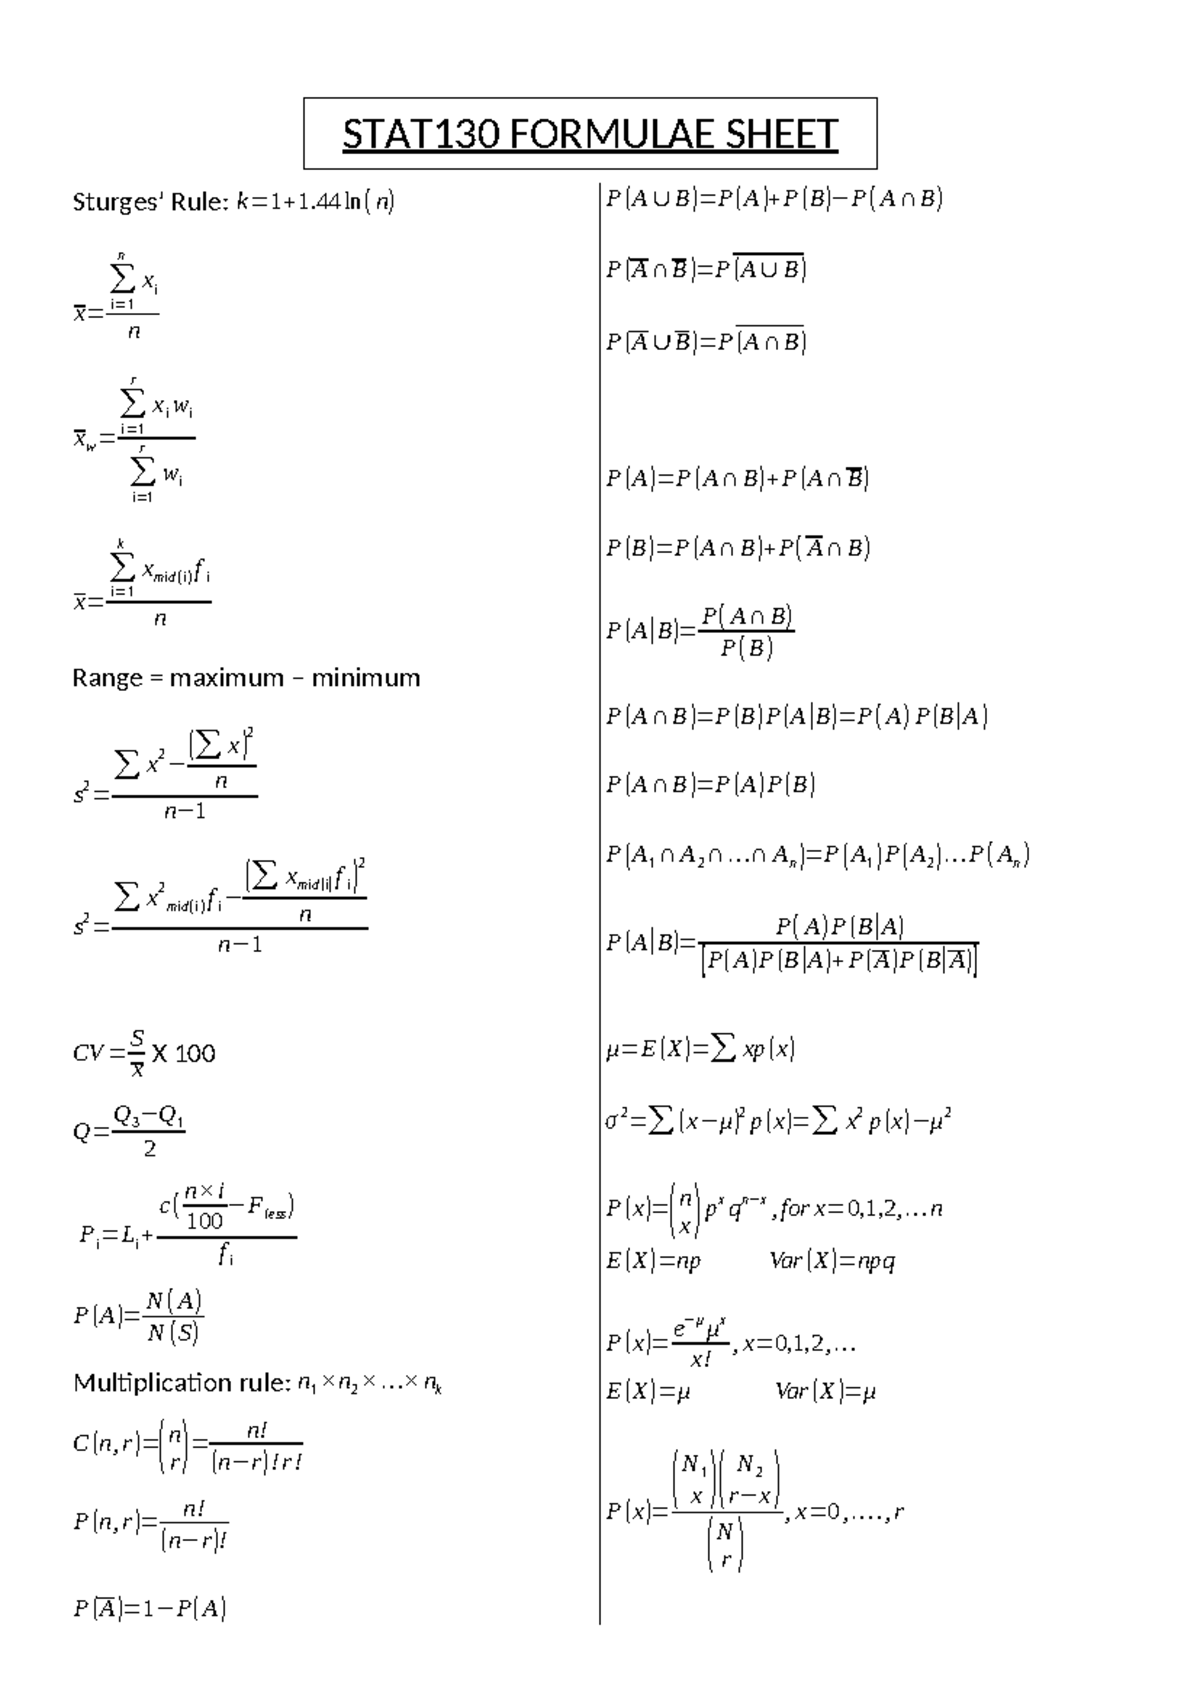 STAT130 FORMULAE SHEET
Sturges' Rule: k=1+1.44 ln(n)
x̄ = (∑_{i=1}^{n} x_i) / n
x̄_w = (∑_{i=1}^{r} x_i w_i) / (∑_{i=1}^{r} w_i)
x̄ = (∑_{i=1}^{k} x_{mid(i)} f_i) / n
Range = maximum – minimum
s² = (∑ x² − (∑ x)² / n) / (n−1)
s² = (∑ x²_{mid(i)} f_i − (∑ x_{mid(i)} f_i)² / n) / (n−1)
CV = S / x̄ X 100
Q = (Q₃−Q₁) / 2
P_i = L_i + c(n×i / 100 − F_{less}) / f_i
P(A) = N(A) / N(S)
Multiplication rule: n₁×n₂×…×n_k
C(n,r) = (n r) = n! / (n−r)!r!
P(n,r) = n! / (n−r)!
P(A̅)=1−P(A)
P(A∪B)=P(A)+P(B)−P(A∩B)
P(A̅∩B̅)=P\overline{(A∪B)}
P(A̅∪B̅)=P\overline{(A∩B)}
P(A)=P(A∩B)+P(A∩B̅)
P(B)=P(A∩B)+P(A̅∩B)
P(A|B) = P(A∩B) / P(B)
P(A∩B)=P(B)P(A|B)=P(A)P(B|A)
P(A∩B)=P(A)P(B)
P(A₁∩A₂∩…∩A_n)=P(A₁)P(A₂)…P(A_n)
P(A|B) = P(A)P(B|A) / [P(A)P(B|A)+P(A̅)P(B|A̅)]
μ=E(X)=∑ xp(x)
σ²=∑(x−μ)² p(x)=∑ x² p(x)−μ²
P(x) = (n x) p^x q^{n−x}, for x=0,1,2,…n
E(X)=np Var(X)=npq
P(x) = e^{−μ} μ^x / x!, x=0,1,2,…
E(X)=μ Var(X)=μ
P(x) = (N₁ x)(N₂ r−x) / (N r), x=0,….,r